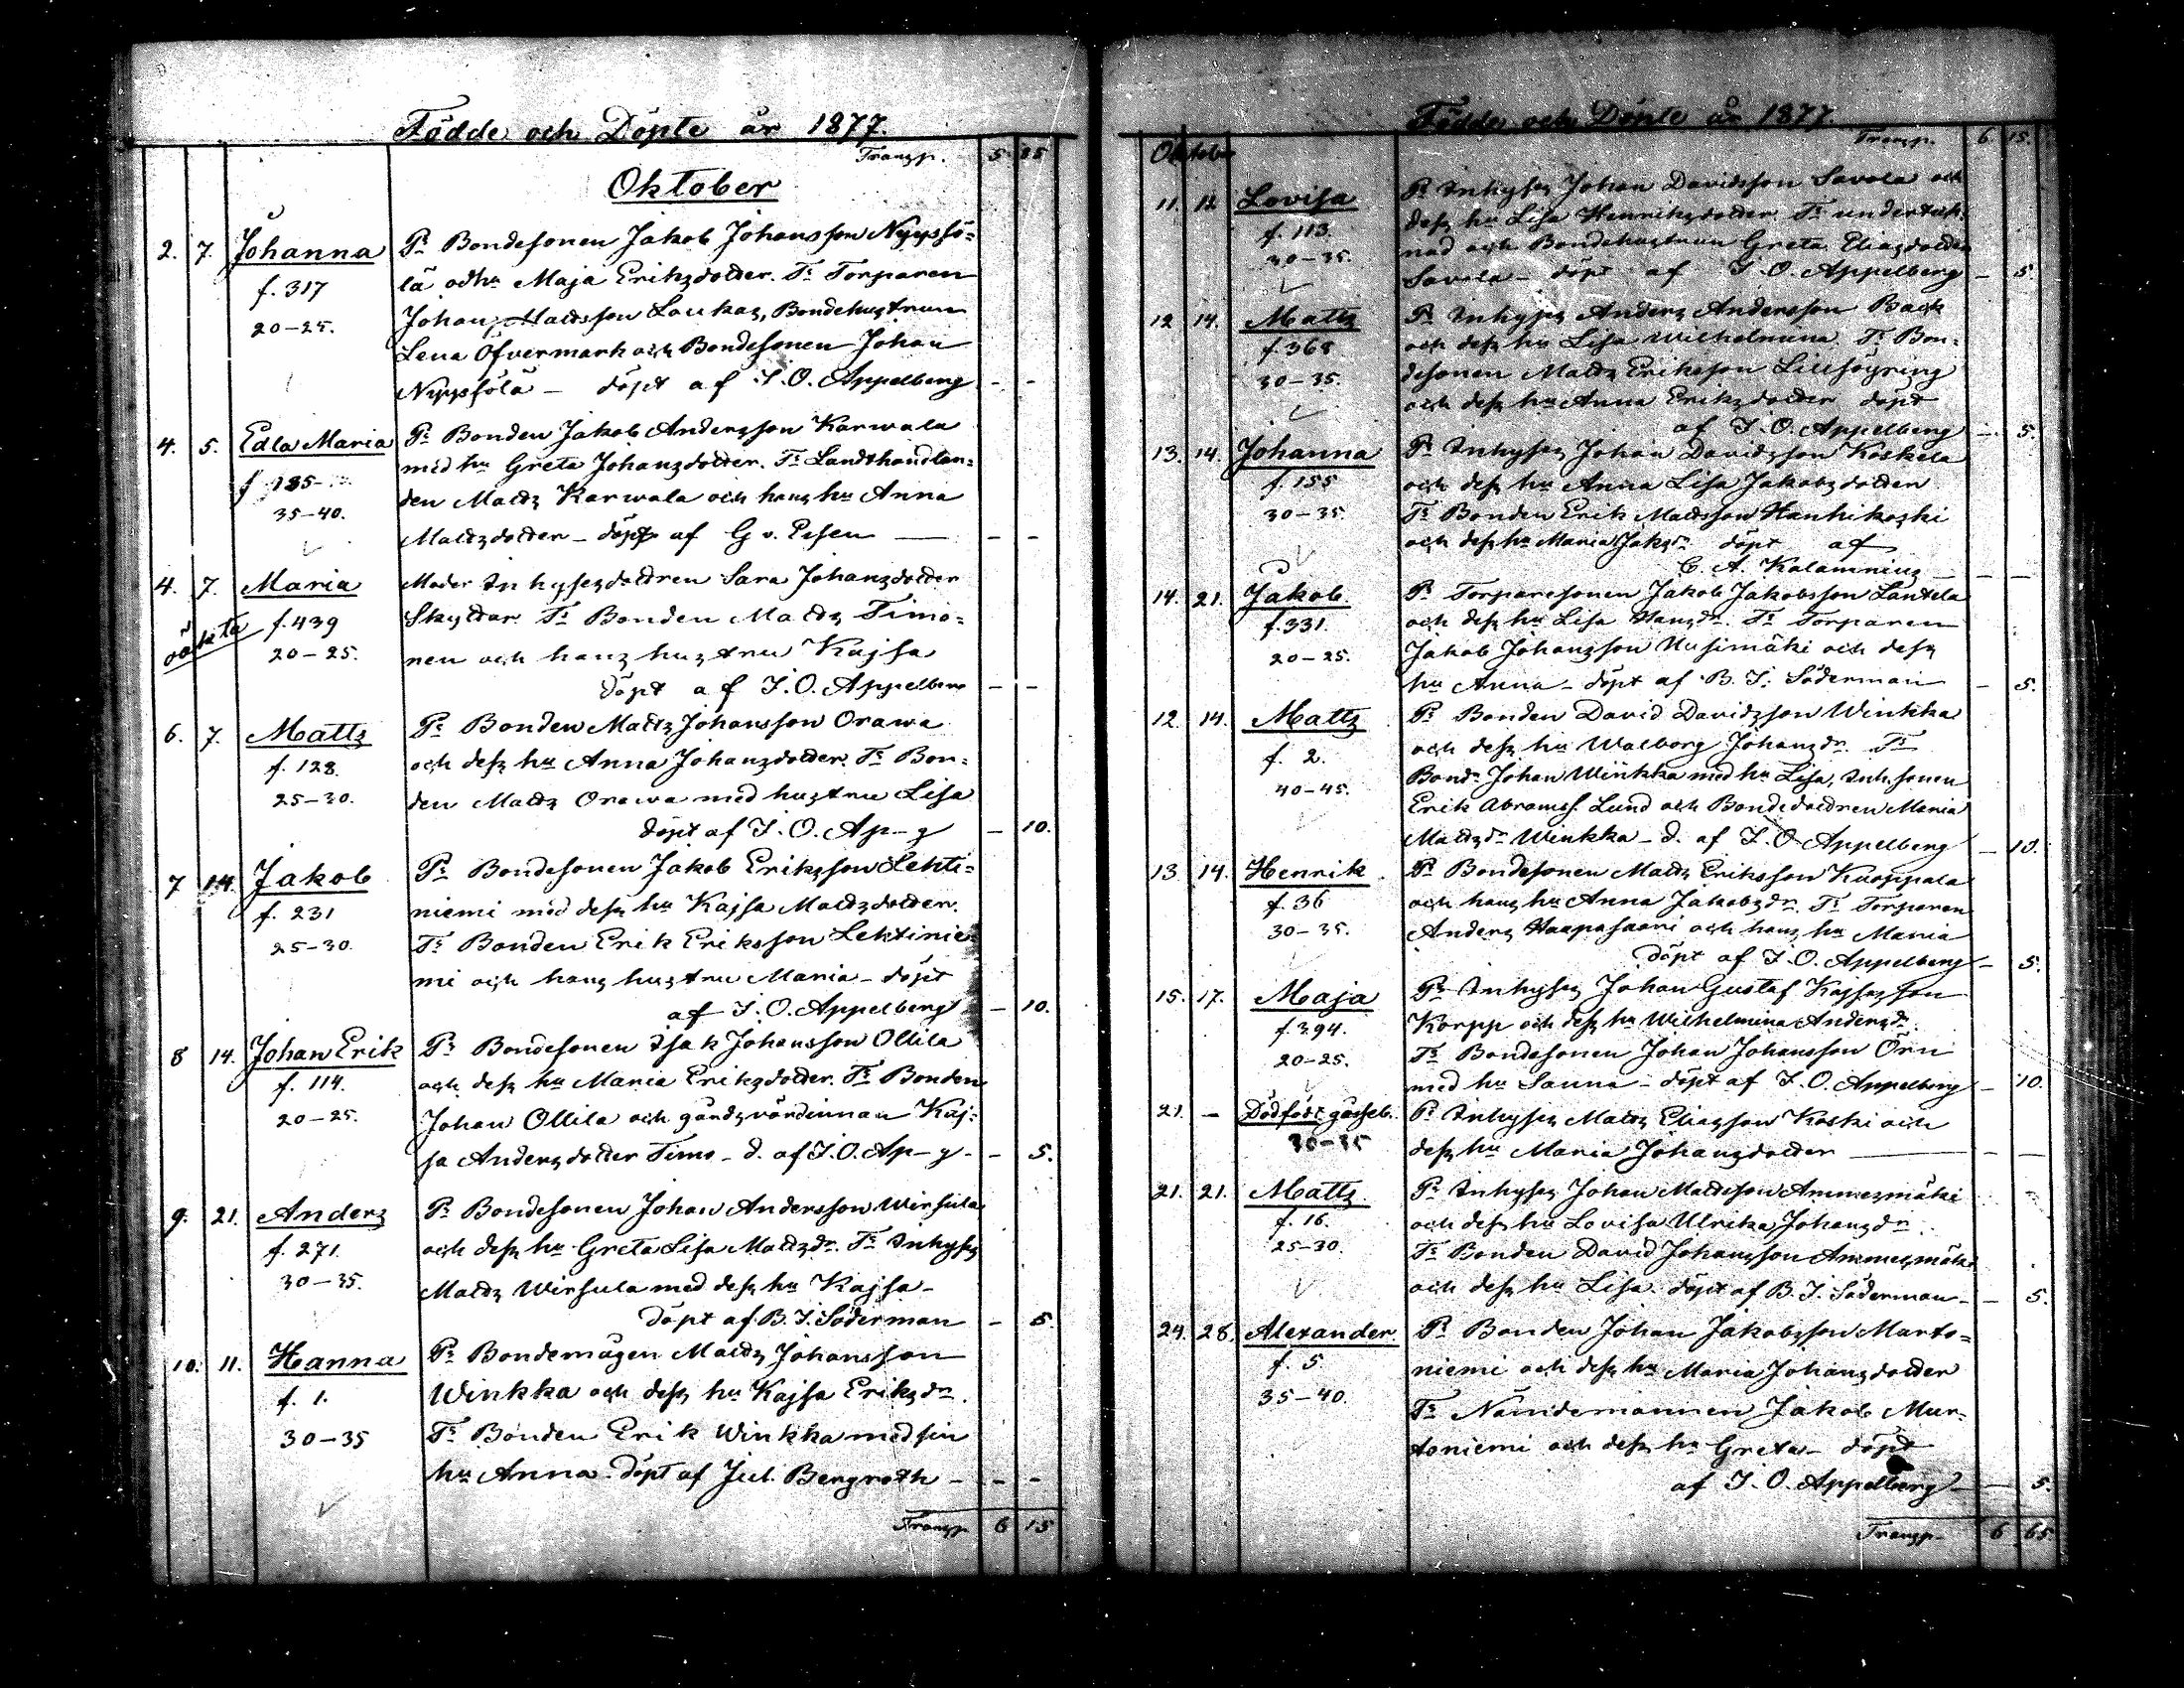 Födde och Döpte år 1877.
Transp. 5 85
Oktober
2. 7. Johanna Pr Bondesonen Jakob Johansson Nyyssö=
f. 317 lä och hu Maja Eriksdotter. Tr Torparen
20-25. Johan Mattsson Laukas, Bondehustrun
Lena Öfvermark och Bondesonen Johan
Nyyssölä – döpt af I. O. Appelberg - -
4. 5. Edla Maria Pr Bonden Jakob Andersson Karwala
f 185 med hu Greta Johansdotter. Tr Landthandlan=
35-40. den Matts Karwala och hans hu Anna
Mattsdotter – döpt af G v. Essen - -
4. 7. Maria Moder Inhysesdottren Sara Johansdotter
oäkta f. 439 Skyttar Tr Bonden Matts Timo=
20-25. nen och hans hustru Kajsa
döpt af I. O. Appelberg - -
6. 7. Matts Pr Bonden Matts Johansson Orawa
f. 128. och dess hu Anna Johansdotter. Tr Bon=
25-30. den Matts Orawa med hustru Lisa
döpt af I. O. Ap-g - 10.
7 14. Jakob Pr Bondesonen Jakob Eriksson Lehti=
f. 231 niemi med dess hu Kajsa Mattsdotter.
25-30. Tr Bonden Erik Eriksson Lehtinie=
mi och hans hustru Maria – döpt
af I. O. Appelberg - 10.
8 14. Johan Erik Pr Bondesonen Isak Johansson Ollila
f. 114. och dess hu Maria Eriksdotter. Tr Bonden
20-25. Johan Ollila och gårdsvärdinnan Kaj=
sa Andersdotter Timo – d. af I. O. Ap-g - 5.
9. 21. Anders Pr Bondesonen Johan Andersson Wirsula
f. 271. och dess hu Greta Lisa Mattsdr. Tr Inhyses
30-35. Matts Wirsula med dess hu Kajsa –
döpt af B. I. Söderman - 5.
10. 11. Hanna Pr Bondemågen Matts Johansson
f. 1. Winkka och dess hu Kajsa Eriksdr.
30-35 Tr Bonden Erik Winkka med sin
hu Anna. döpt af Jul. Bergroth - -
Transp. 6 15
Födde och Döpte år 1877.
Oktober Transp. 6. 15.
11. 12 Lovisa Pr Inhyses Johan Davidsson Savola och
f. 113. dess hu Lisa Henriksdotter. Tr underteck=
30-35. nad och Bondehustrun Greta Eliasdotter
Savola – döpt af I. O. Appelberg - 5.
12 14. Matts Pr Inhyses Anders Andersson Back
f. 368 och dess hu Lisa Wilhelmina. Tr Bon=
30-35. desonen Matts Eriksson Lillsöyring
och dess hu Anna Eriksdotter döpt
af I. O. Appelberg - 5.
13. 14. Johanna Pr Inhyses Johan Davidsson Koskela
f. 155 och dess hu Anna Lisa Jakobsdotter
30-35. Tr Bonden Erik Mattsson Hanhikoski
och dess hu Maria Jaksdr döpt af
C. A. Kalamnius - -
14. 21. Jakob. Pr Torparesonen Jakob Jakobsson Lantela
f. 331. och dess hu Lisa Hansdr. Tr Torparen
20-25. Jakob Johansson Uusimäki och dess
hu Anna – döpt af B. I. Söderman - 5.
12. 14. Matts Pr Bonden David Davidsson Winkka
f. 2. och dess hu Walborg Johansdr. Tr
40-45. Bond. Johan Winkka med hu Lisa, Inh.sonen
Erik Abramss. Lund och Bondedottren Maria
Mattsdr Winkka – d. af I. O. Appelberg - 10.
13. 14. Henrik Pr Bondesonen Matts Eriksson Kuoppala
f. 36 och hans hu Anna Jakobsdr. Tr Torparen
30-35. Anders Haapasaari och hans hu Maria
döpt af I. O. Appelberg - 5.
15. 17. Maja Pr Inhyses Johan Gustaf Kajsasson
f. 394. Korpp och dess hu Wilhelmina Andersdr.
20-25. Tr Bondesonen Johan Johansson Örn
med hu Sanna – döpt af I. O. Appelberg - 10.
21. – Dödfödt gosseb. Pr Inhyses Matts Eliasson Koski och
30-35 dess hu Maria Johansdotter - -
21. 21. Matts Pr Inhyses Johan Mattsson Ammesmäki
f. 16. och dess hu Lovisa Ulrika Johansdr.
25-30. Tr Bonden David Johansson Ammesmäki
och dess hu Lisa. döpt af B. I. Söderman - 5.
24. 28. Alexander. Pr Bonden Johan Jakobsson Marto=
f. 5 niemi och dess hu Maria Johansdotter
35-40. Tr Nämdemannen Jakob Mur=
toniemi och dess hu Greta – döpt
af I. O. Appelberg - 5.
Transp. 6 65.